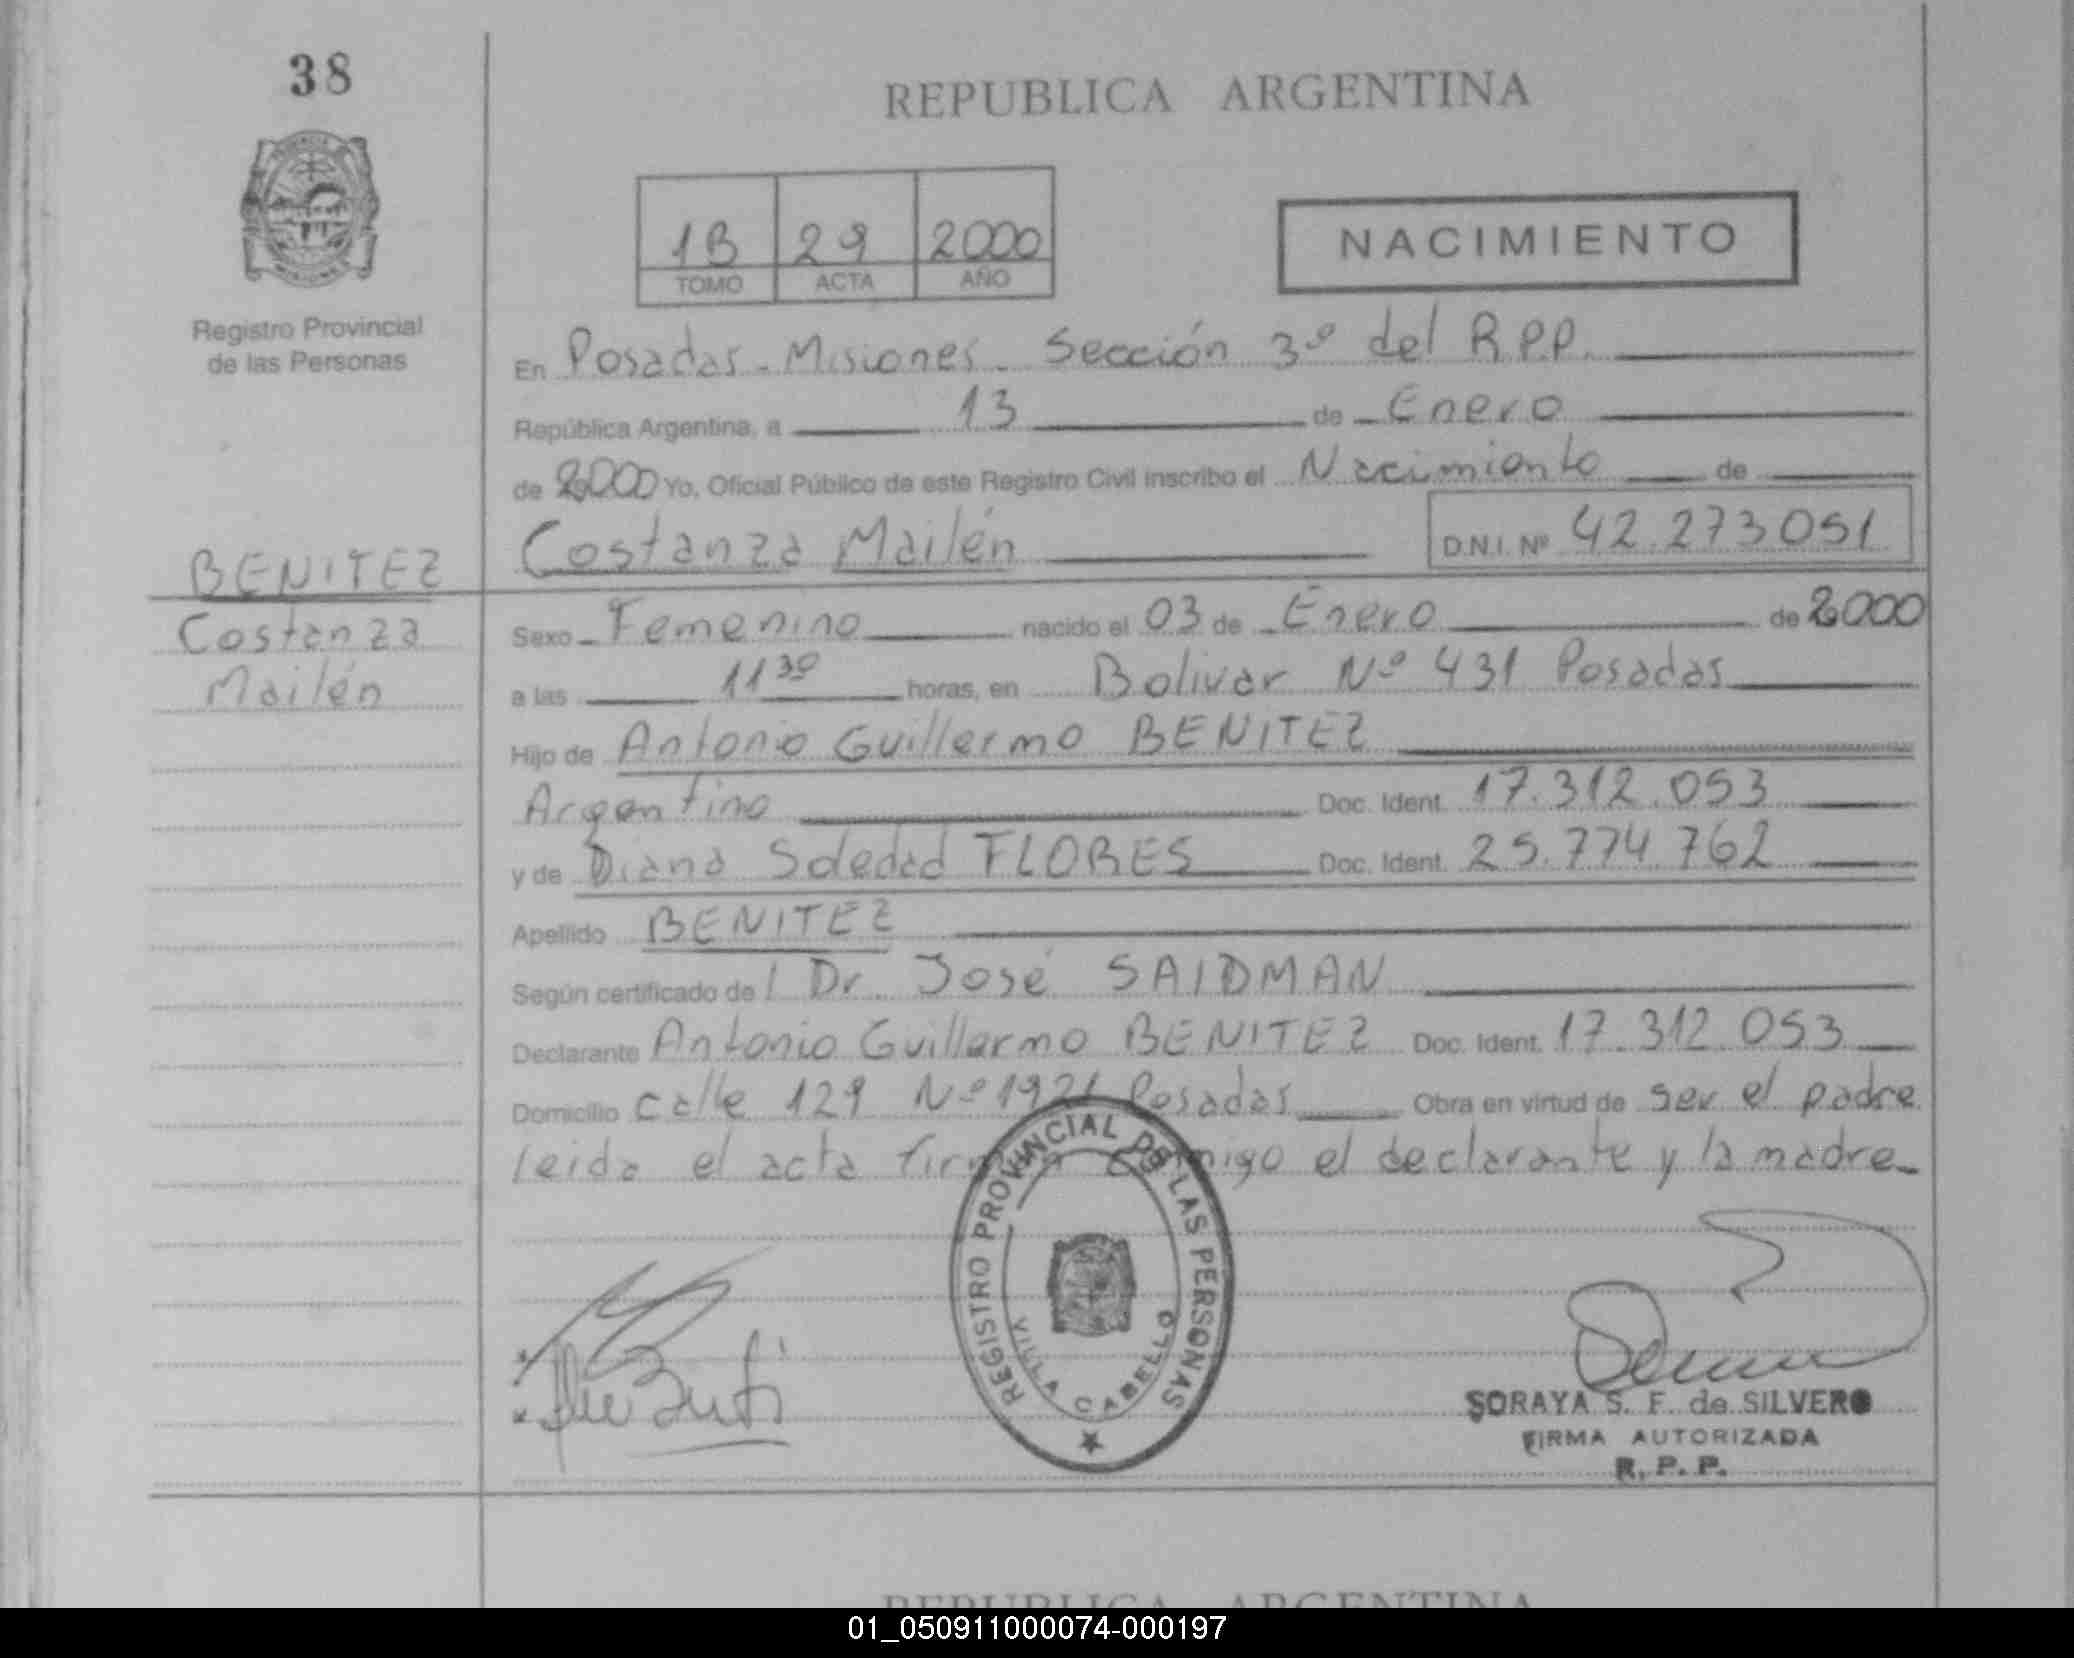 38
REPUBLICA ARGENTINA
1B 29 2000
TOMO ACTA AÑO
NACIMIENTO
Registro Provincial
de las Personas
En Posadas - Misiones - Sección 3º del R.P.P.
República Argentina, a 13 de Enero
de 2000 Yo, Oficial Público de este Registro Civil inscribo el Nacimiento de
Costanza Mailén D.N.I. Nº 42.273051
BENITEZ
Costanza
Mailén
Sexo Femenino nacido el 03 de Enero de 2000
a las 11 30 horas, en Bolivar Nº 431 Posadas
Hijo de Antonio Guillermo BENITEZ
Argentino Doc. Ident. 17.312.053
y de Diana Soledad FLORES Doc. Ident. 25.774.762
Apellido BENITEZ
Según certificado de l Dr. José SAIDMAN
Declarante Antonio Guillermo BENITEZ Doc. Ident. 17.312.053
Domicilio calle 129 Nº 1921 Posadas Obra en virtud de ser el padre
leida el acta firman conmigo el declarante y la madre
REGISTRO PROVINCIAL DE LAS PERSONAS
VILLA CABELLO
SORAYA S. F. de SILVERO
FIRMA AUTORIZADA
R. P. P.
REPUBLICA ARGENTINA
01_050911000074-000197